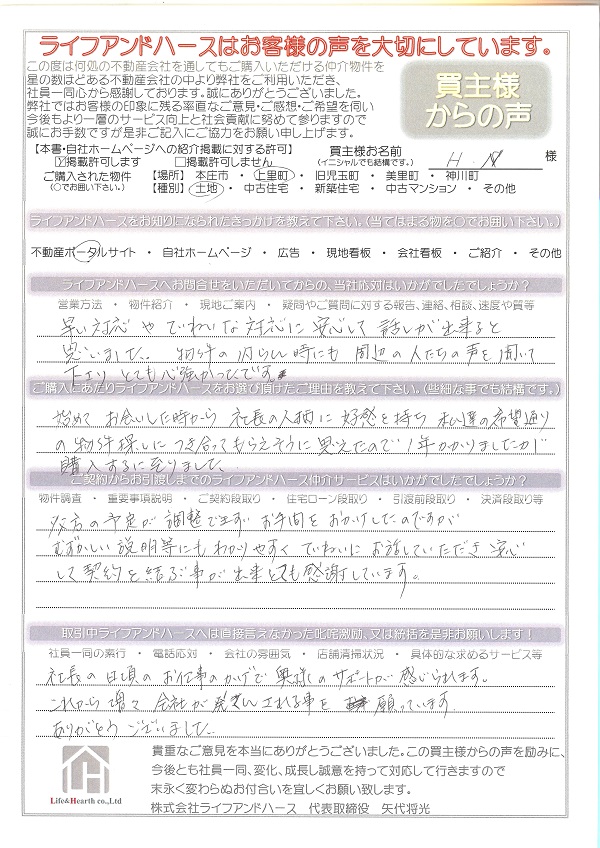 ライフアンドハースはお客様の声を大切にしています。
この度は何処の不動産会社を通してもご購入いただける仲介物件を
星の数ほどある不動産会社の中より弊社をご利用いただき、
社員一同心から感謝しております。誠にありがとうございました。
弊社ではお客様の印象に残る率直なご意見・ご感想・ご希望を伺い
今後もより一層のサービス向上と社会貢献に努めて参りますので
誠にお手数ですが是非ご記入にご協力をお願い申し上げます。
買主様
からの声
【本書・自社ホームページへの紹介掲載に対する許可】
掲載許可します 掲載許可しません
買主様お名前
(イニシャルでも結構です。)
H. N 様
ご購入された物件
(○でお囲い下さい。)
【場所】 本庄市 ・ 上里町 ・ 旧児玉町 ・ 美里町 ・ 神川町
【種別】 土地 ・ 中古住宅 ・ 新築住宅 ・ 中古マンション ・ その他
ライフアンドハースをお知りになられたきっかけを教えて下さい。(当てはまる物を○でお囲い下さい。)
不動産ポータルサイト ・ 自社ホームページ ・ 広告 ・ 現地看板 ・ 会社看板 ・ ご紹介 ・ その他
ライフアンドハースへお問合せをいただいてからの、当社応対はいかがでしたでしょうか?
営業方法 ・ 物件紹介 ・ 現地ご案内 ・ 疑問やご質問に対する報告、連絡、相談、速度や質等
早い対応や ていねいな対応に 安心して 話しが出来ると
思いました。 物件の内らん時にも 周辺の人たちの声を聞いて
下さり とても心強かったです
ご購入にあたりライフアンドハースをお選び頂けたご理由を教えて下さい。(些細な事でも結構です。)
始めて お会いした時から 社長の人柄に 好感を持ち 私達の希望通り
の物件探しに つき合ってもらえそうに思えたので 1年かかりましたが
購入するに至りました。
ご契約からお引渡しまでのライフアンドハース仲介サービスはいかがでしたでしょうか?
物件調査 ・ 重要事項説明 ・ ご契約段取り ・ 住宅ローン段取り ・ 引渡前段取り ・ 決済段取り等
双方の予定が 調整できず お手間を おかけしたのですが
むずかしい説明等にも わかりやすく ていねいに お話していただき 安心
して 契約を結ぶ事が出来 とても感謝しています。
取引中ライフアンドハースへは直接言えなかった叱咤激励、又は統括を是非お願いします!
社員一同の素行 ・ 電話応対 ・ 会社の雰囲気 ・ 店舗清掃状況 ・ 具体的な求めるサービス等
社長の日頃の お仕事のかげで 奥様の サポートが 感じられます。
これから 増々 会社が 発てんされる事を 願っています
ありがとう ございました。
Life&Hearth co.,Ltd
貴重なご意見を本当にありがとうございました。この買主様からの声を励みに、
今後とも社員一同、変化、成長し誠意を持って対応して行きますので
末永く変わらぬお付合いを宜しくお願い致します。
株式会社ライフアンドハース 代表取締役 矢代将光